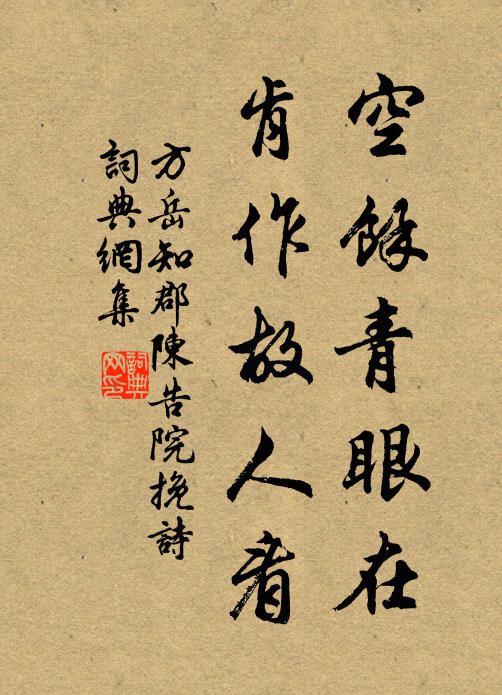 空餘青眼在
肯作故人看
方岳知郡陳告院挽詩
詞典網集
詞典
网印